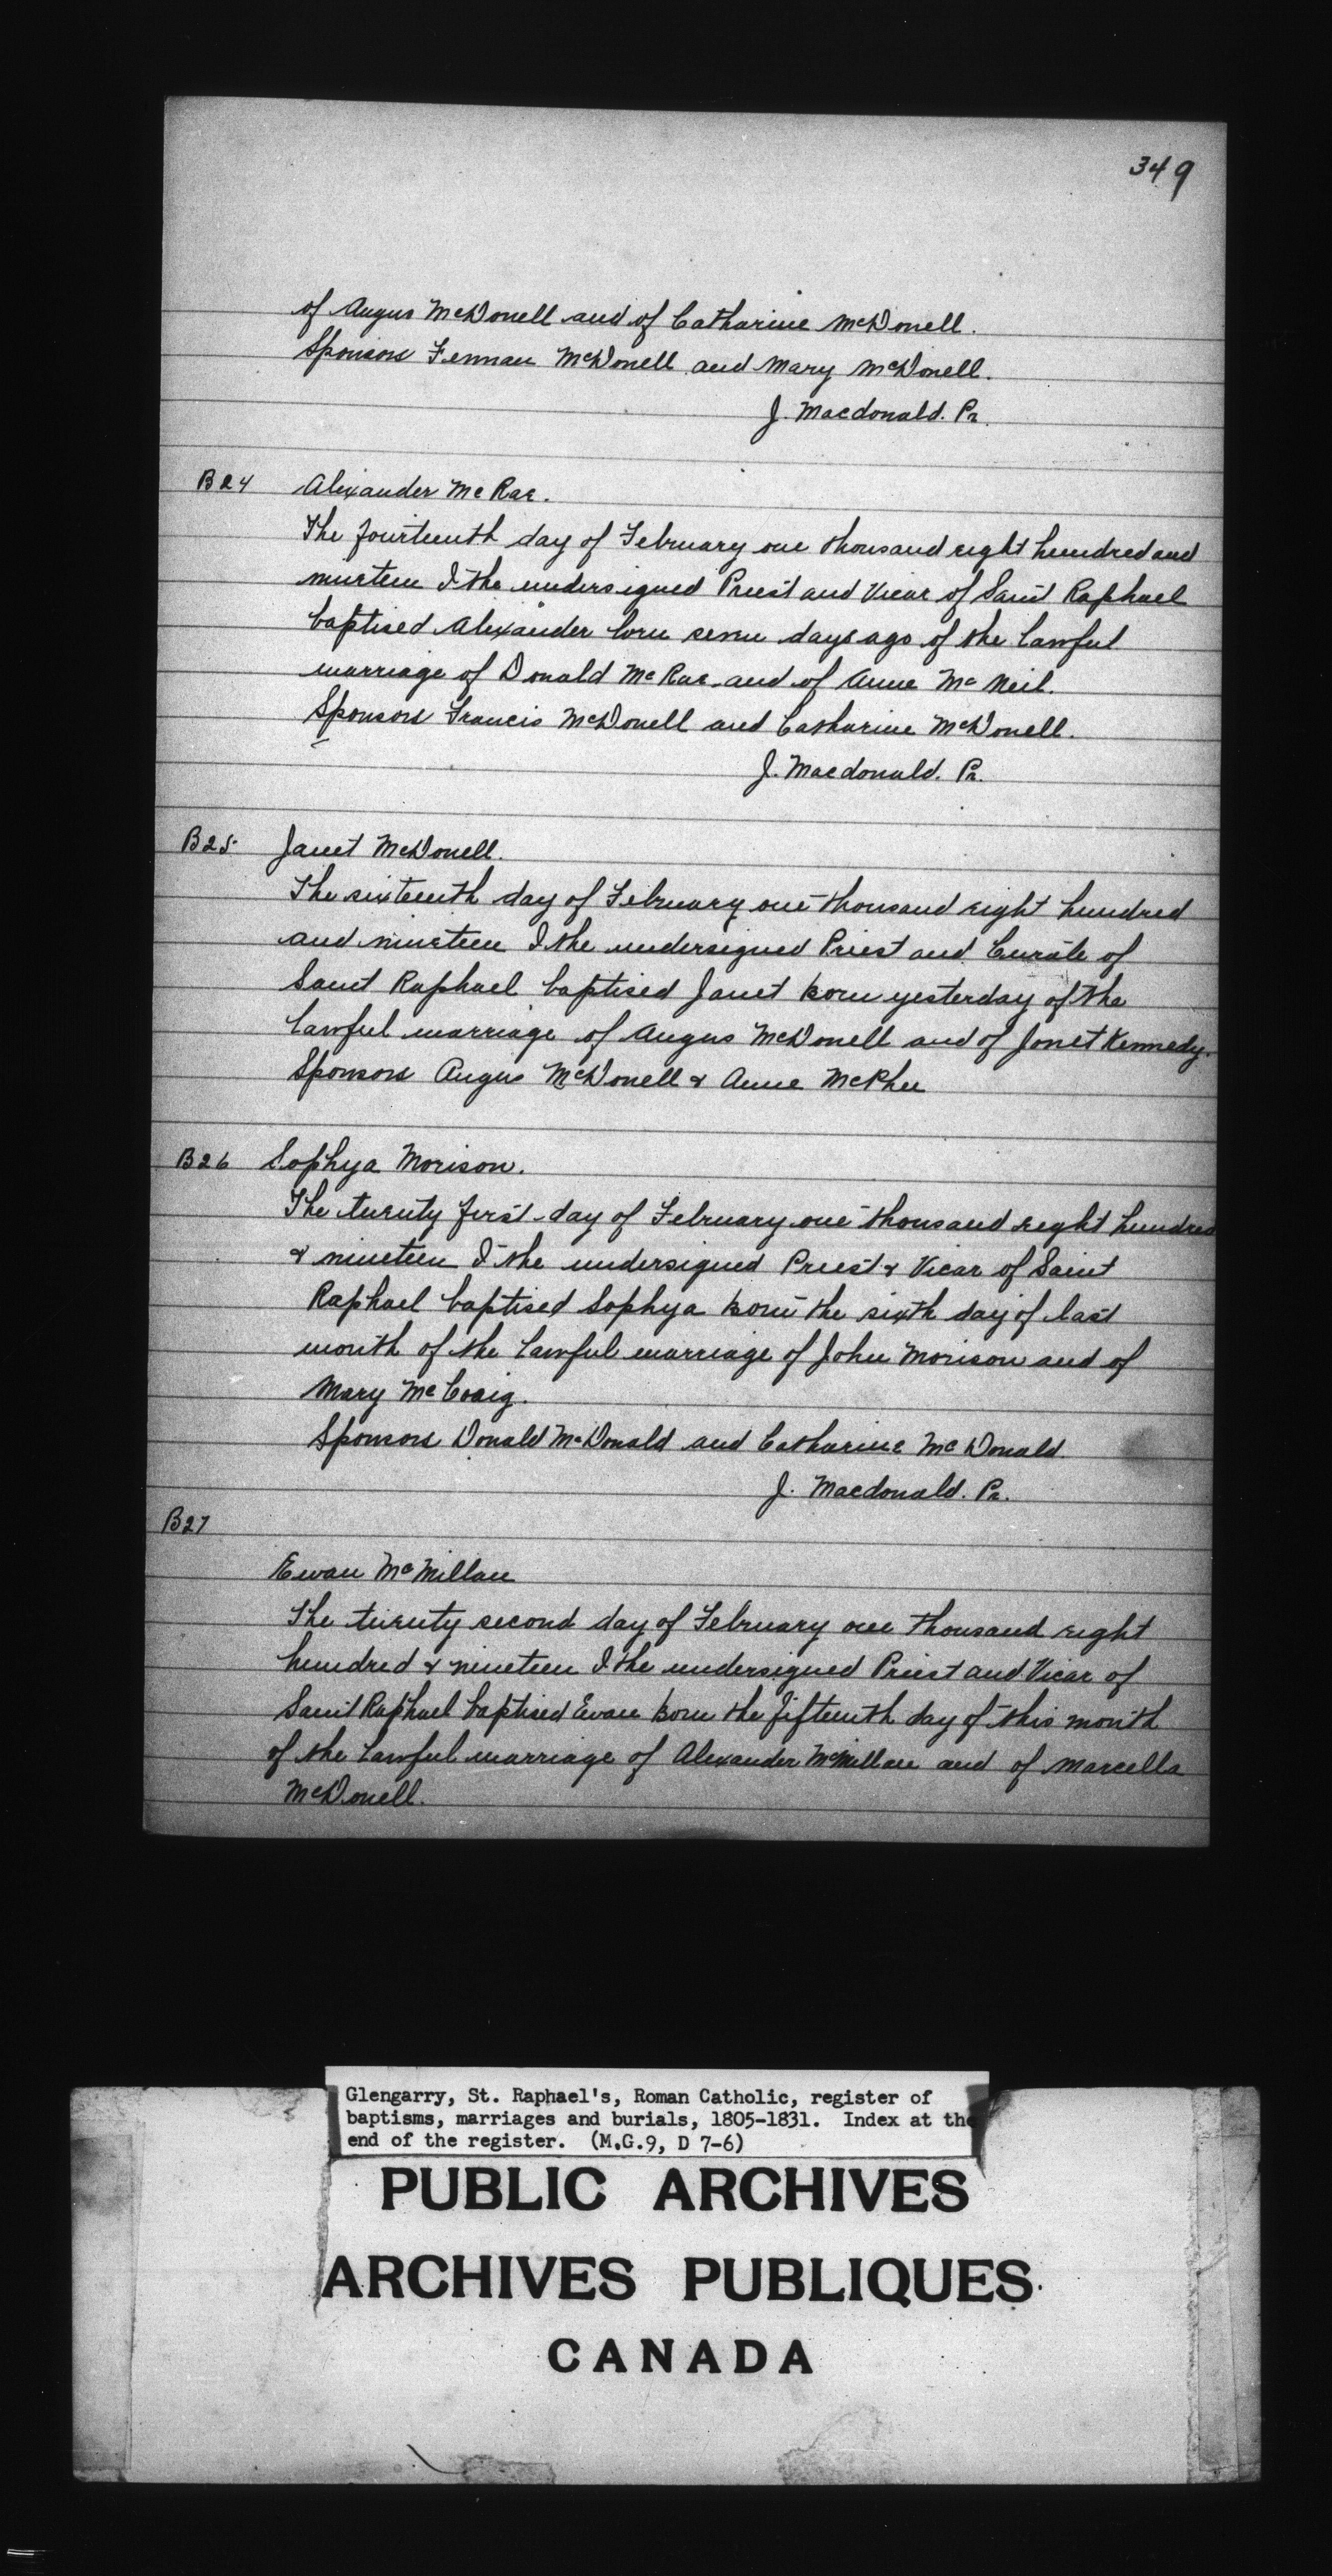 349
of Angus McDonell and of Catharine McDonell.
Sponsors Fennan McDonell and Mary McDonell.
J. Macdonald. Pr.
B24 Alexander McRae.
The fourteenth day of February one thousand eight hundred and
nineteen I the undersigned Priest and Vicar of Saint Raphael
baptised Alexander born seven days ago of the lawful
marriage of Donald McRae and of Anne McNeil.
Sponsors Francis McDonell and Catharine McDonell.
J. Macdonald. Pr.
B25 Janet McDonell.
The sixteenth day of February one thousand eight hundred
and nineteen I the undersigned Priest and Curate of
Saint Raphael baptised Janet born yesterday of the
lawful marriage of Angus McDonell and of Jonet Kennedy.
Sponsors Angus McDonell & Anne McPhee
B26 Sophya Morison.
The twenty first day of February one thousand eight hundred
& nineteen I the undersigned Priest & Vicar of Saint
Raphael baptised Sophya born the sixth day of last
month of the lawful marriage of John Morison and of
Mary McCraig.
Sponsors Donald McDonald and Catharine McDonald.
J. Macdonald. Pr.
B27
Ewan McMillan
The twenty second day of February one thousand eight
hundred & nineteen I the undersigned Priest and Vicar of
Saint Raphael baptised Ewan born the fifteenth day of this month
of the lawful marriage of Alexander McMillan and of Marcella
McDonell.
Glengarry, St. Raphael's, Roman Catholic, register of
baptisms, marriages and burials, 1805-1831. Index at the
end of the register. (M.G.9, D 7-6)
PUBLIC ARCHIVES
ARCHIVES PUBLIQUES
CANADA